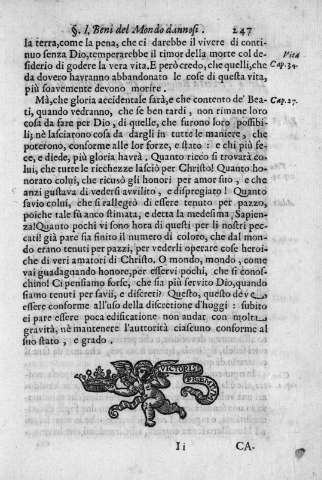 §. I. Beni del Mondo dannosi. 247
la terra, come la pena, che ci darebbe il vivere di conti-
nuo senza Dio, temperarebbe il timor della morte col de- Vita
siderio di godere la vera vita. E però credo, che quelli, che Cap. 34.
da dovero havranno abbandonato le cose di questa vita,
più soavemente devono morire.
Mà, che gloria accidentale sarà, e che contento de' Bea- Cap. 27.
ti, quando vedranno, che se ben tardi, non rimane loro
cosa da fare per Dio, di quelle, che furono loro possibi-
li; nè lasciarono cosa da dargli in tutte le maniere, che
poterono, conforme alle lor forze, e stato: e chi più fe-
ce, e diede, più gloria havrà. Quanto ricco si trovarà co-
lui, che tutte le ricchezze lasciò per Christo! Quanto ho-
norato colui, che ricusò gli honori per amor suo, e che
anzi gustava di vedersi avvilito, e dispregiato! Quanto
savio colui, che si rallegrò di essere tenuto per pazzo,
poiche tale fù anco stimata, e detta la medesima, Sapien-
za! Quanto pochi vi sono hora di questi per li nostri pec-
cati! già pare sia finito il numero di coloro, che dal mon-
do erano tenuti per pazzi, per vederli operare cose heroi-
che di veri amatori di Christo. O mondo, mondo, come
vai guadagnando honore, per esservi pochi, che ti cono-
schino! Ci pensiamo forse, che sia più servito Dio, quando
siamo tenuti per savii, e discreti? Questo, questo deve
essere conforme all'uso della discretione d'hoggi: subito
ci pare essere poca edificatione non andar con molta
gravità, nè mantenere l'auttorità ciascuno conforme al
suo stato, e grado.
VICTORIS
PRÆMIUM
Ii CA-